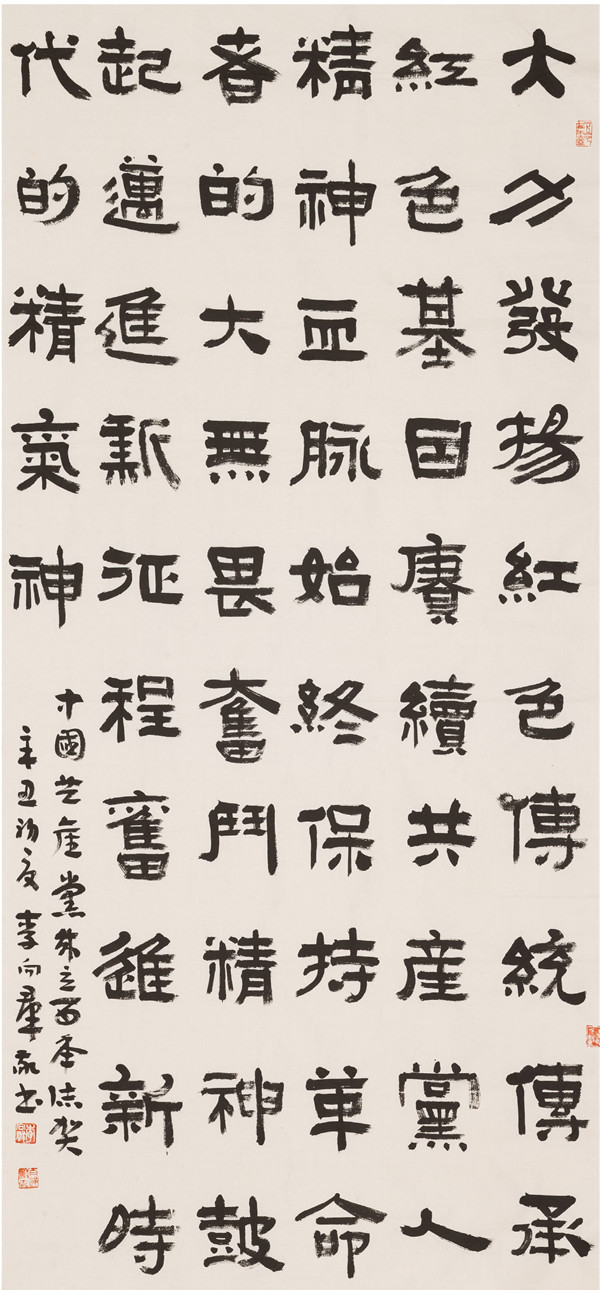 大力發揚紅色傳統傳承
紅色基因賡續共産黨人
精神血脉始終保持革命
者的大無畏奮鬥精神鼓
起邁進新征程奮進新時
代的精氣神
中國共産黨成立百年誌賀
辛丑初夏李向群敬书